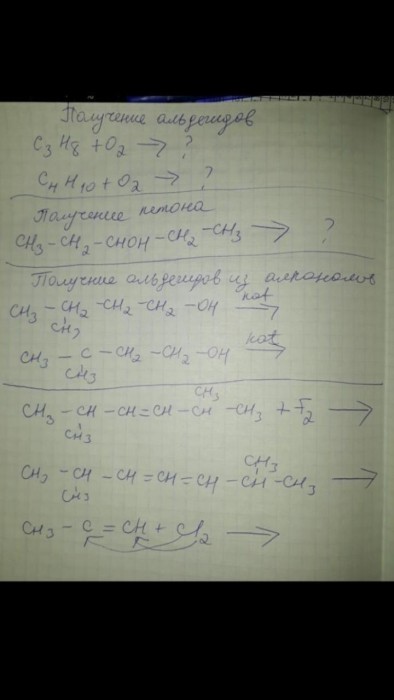 Получение альдегидов
C3H8 + O2 → ?
C4H10 + O2 → ?
Получение кетона
CH3-CH2-CHOH-CH2-CH3 → ?
Получение альдегидов из алканолов
CH3-CH2-CH2-CH2-OH kat →
CH3
CH3-C-CH2-CH2-OH kat →
CH3
CH3
CH3-CH-CH=CH-CH-CH3 + F2 →
CH3
CH3
CH3-CH-CH=CH=CH-CH-CH3 →
CH3
CH3-C=CH + Cl2 →